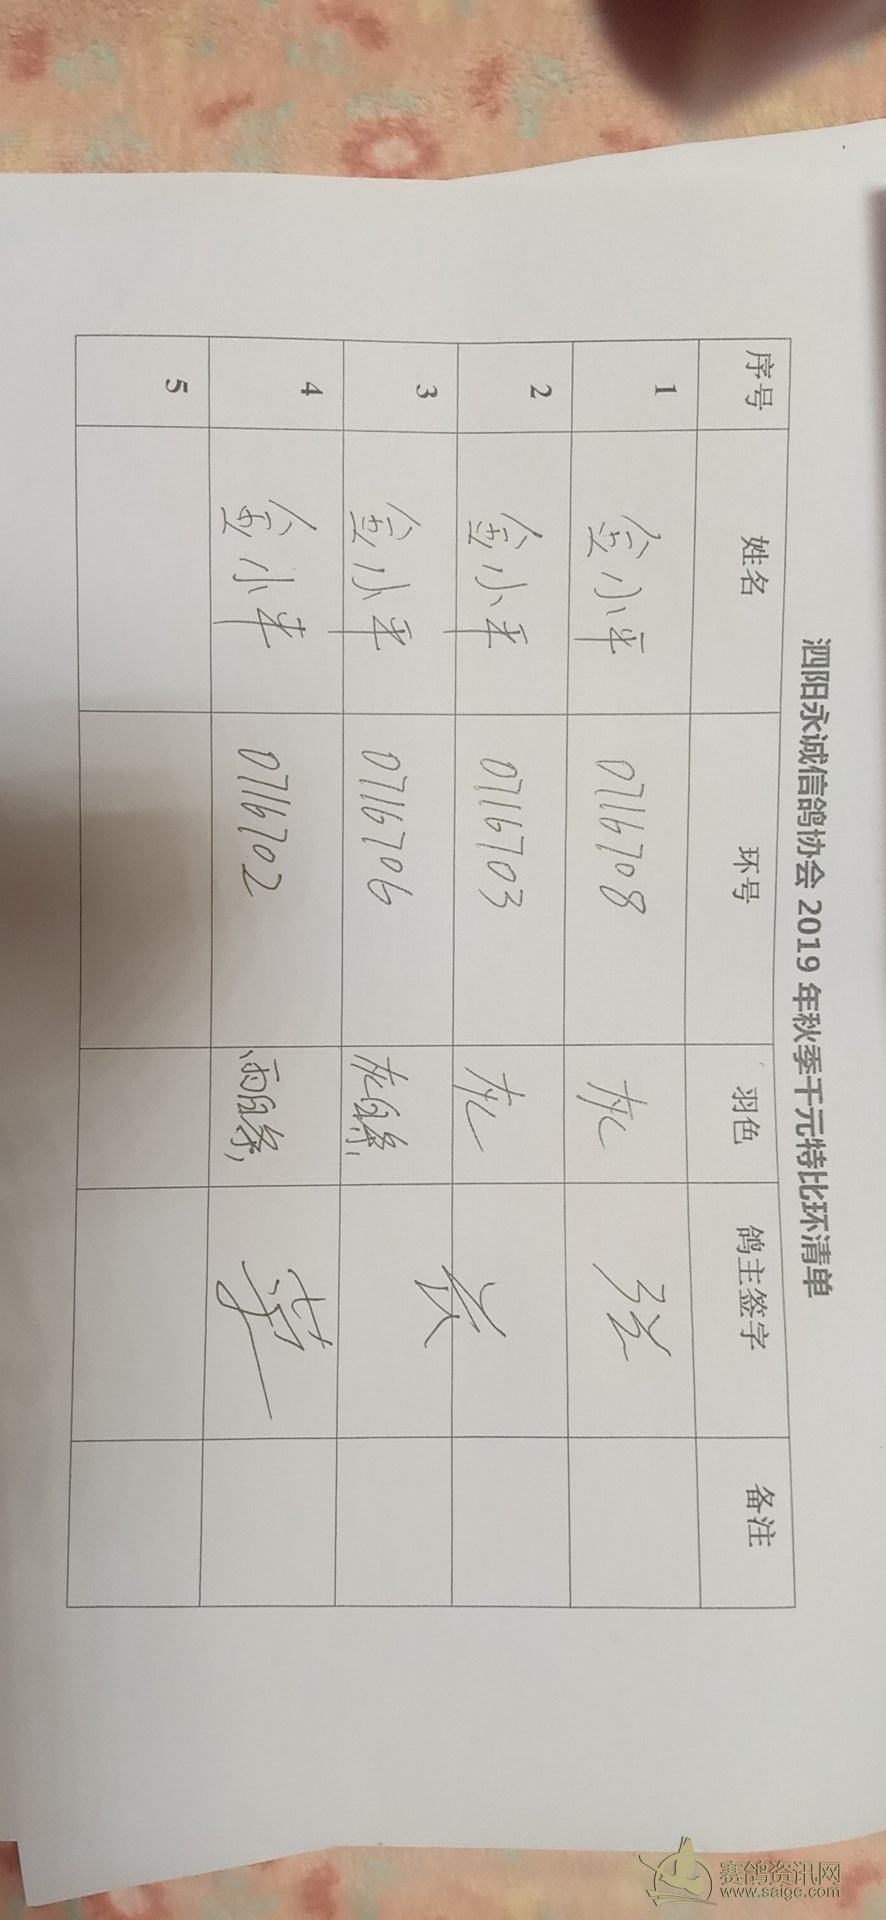 泗阳永诚信鸽协会 2019 年秋季千元特比环清单
序号 姓名 环号 羽色 鸽主签字 备注
1 金小平 0716708 灰
2 金小平 0716703 灰
3 金小平 0716706 灰白条
4 金小平 0716702 雨白条
5
赛鸽资讯网
www.saigc.com